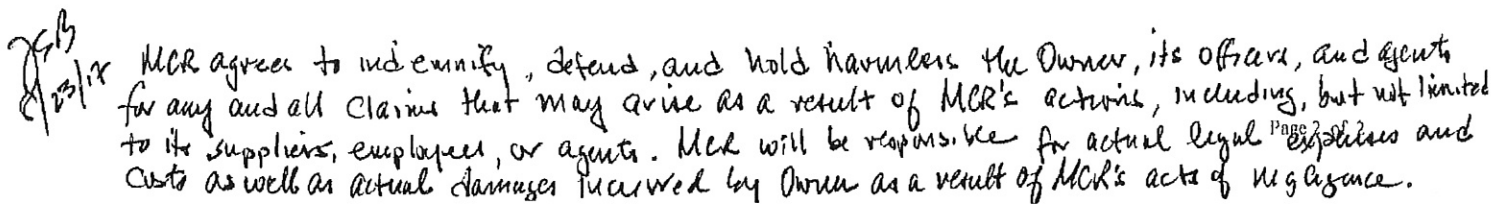 JGB
8/23/18
MCR agrees to indemnify, defend, and hold harmless the Owner, its officers, and agents
for any and all claims that may arise as a result of MCR's actions, including, but not limited
to its suppliers, employees, or agents. MCR will be responsible for actual legal expenses and
Page 2 of 2
costs as well as actual damages incurred by Owner as a result of MCR's acts of negligence.